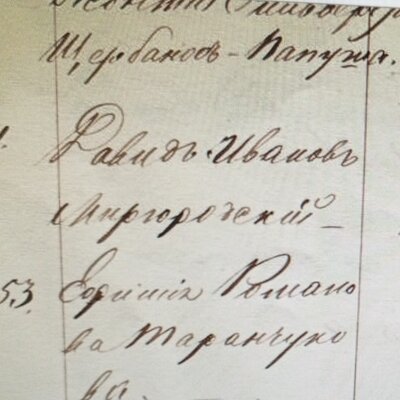 Щербановъ-Папуша.
Давидъ Ивановъ
Миргородскій
53. Ефимія Романо
ва Таранчуко
ва.